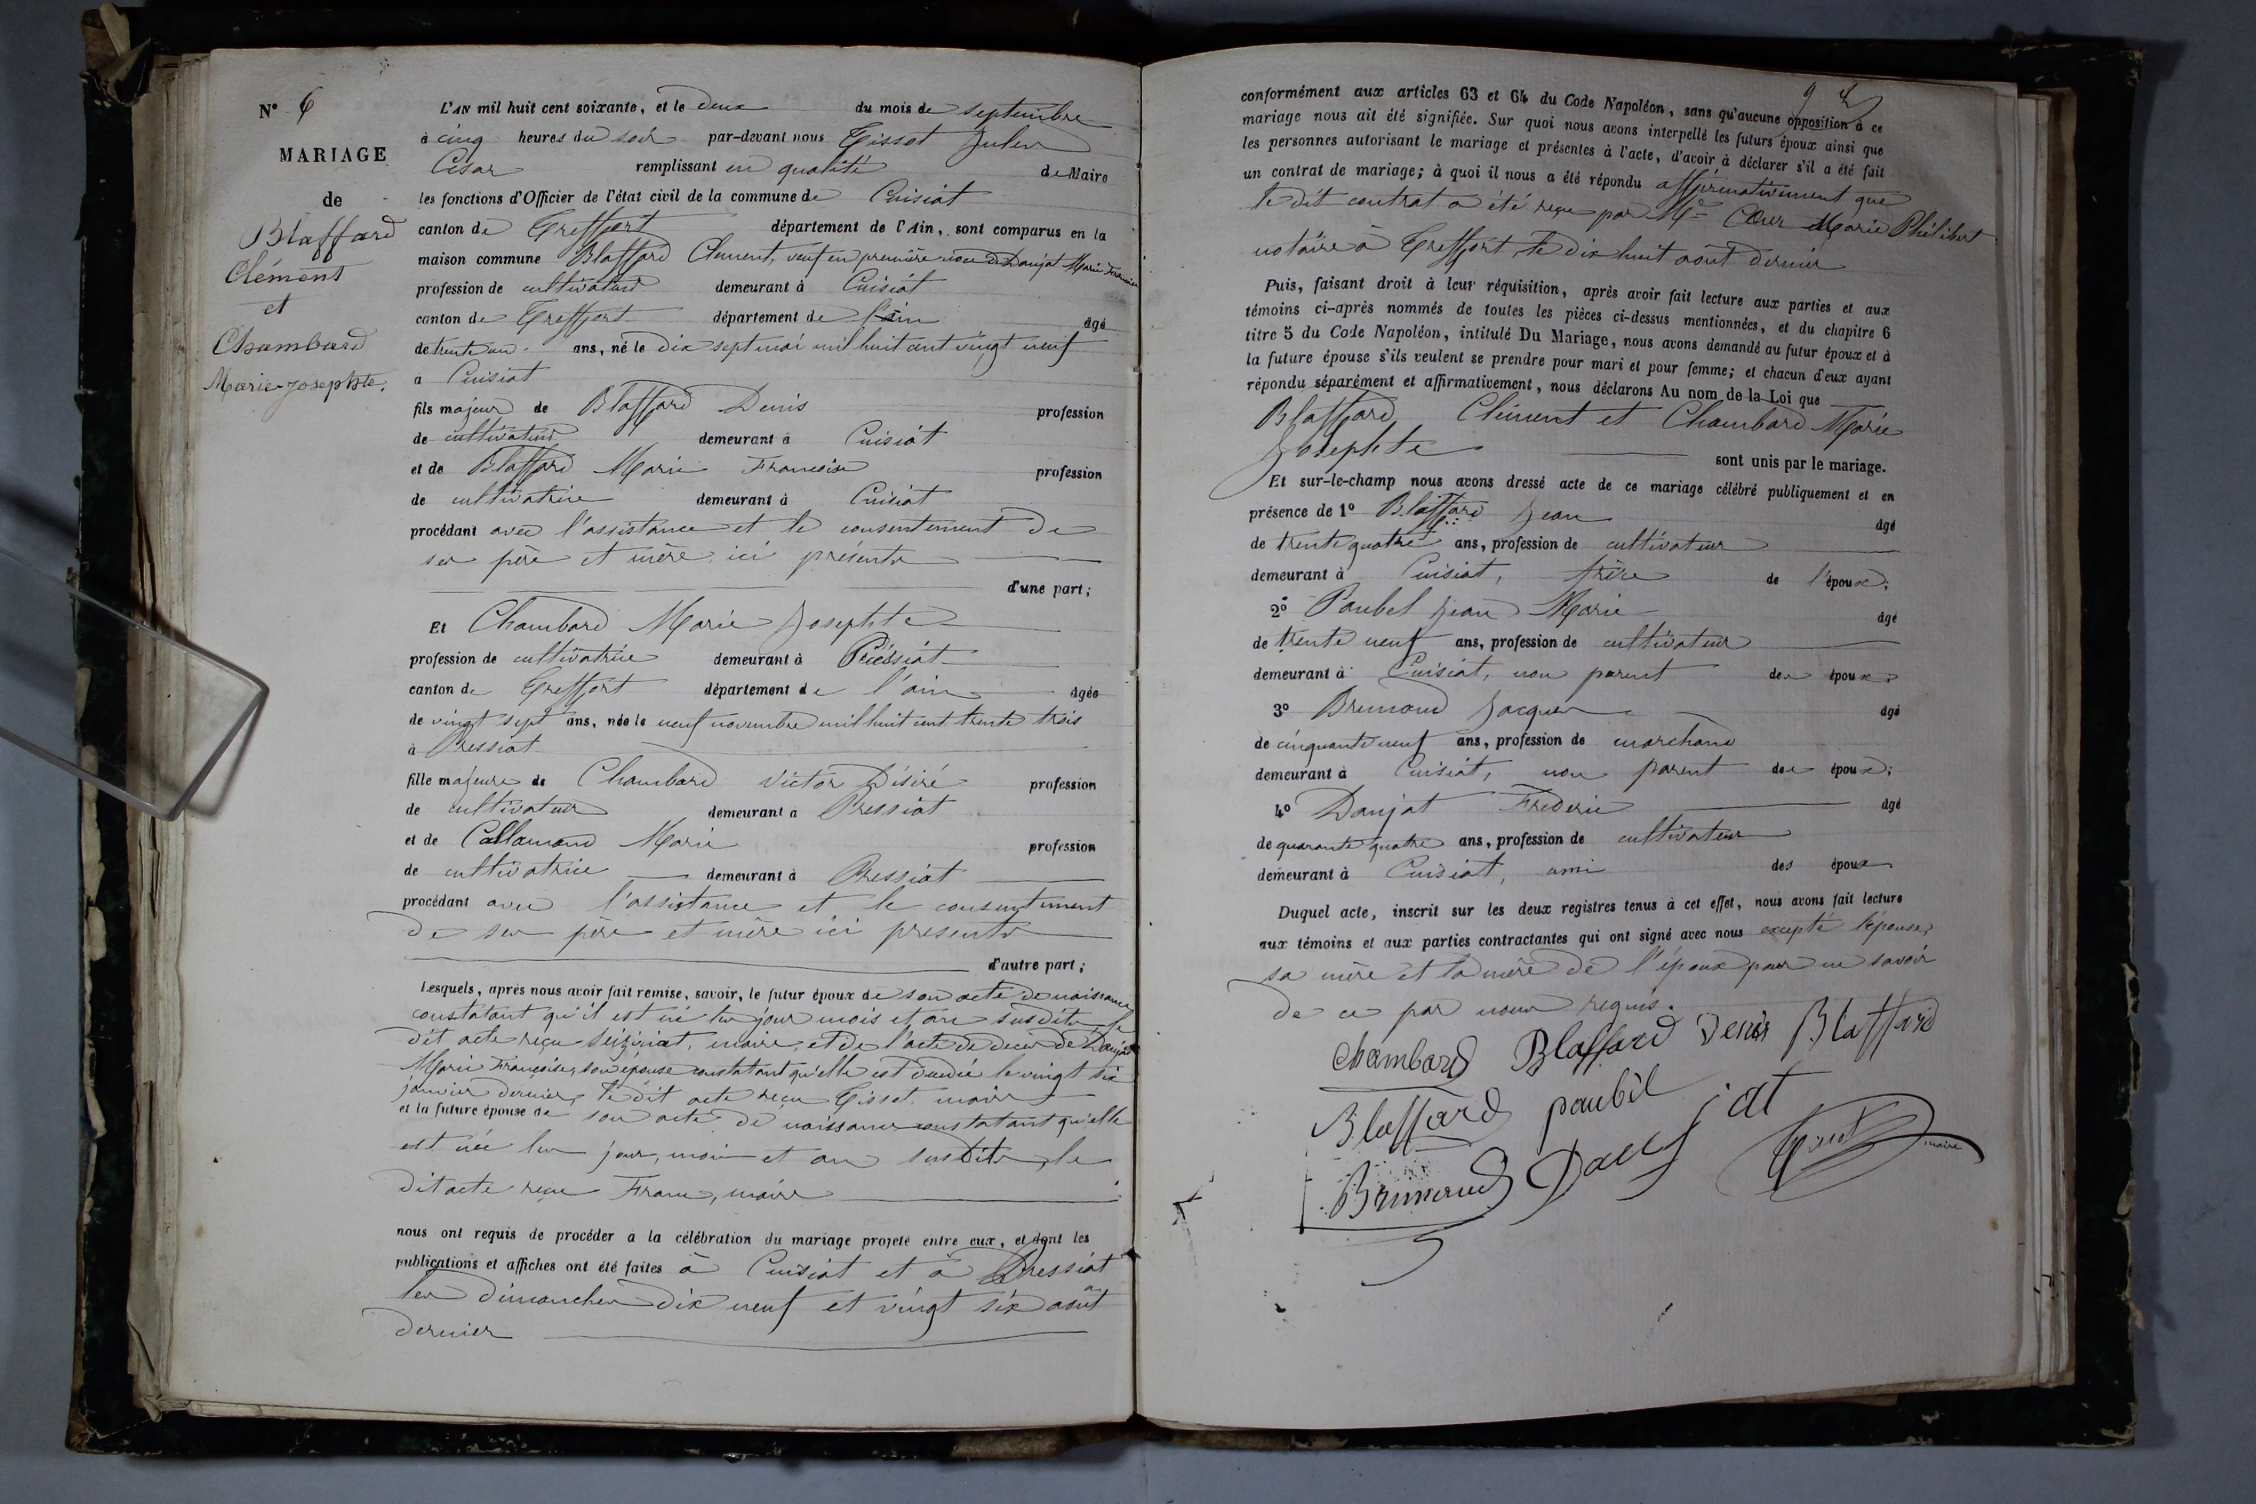 N° 6
MARIAGE
de
Blaffard
Clément
et
Chambard
Marie-Josephte.
L'AN mil huit cent soixante, et le deux du mois de septembre
à cinq heures du soir par-devant nous Tissot Jules
César remplissant en qualité de Maire
les fonctions d'Officier de l'état civil de la commune de Cuisiat
canton de Treffort département de l'Ain, sont comparus en la
maison commune Blaffard Clément, veuf en première noce de Daujat Marie Francoise
profession de cultivateur demeurant à Cuisiat
canton de Treffort département de l'ain âgé
de trente un ans, né le dix sept mai mil huit cent vingt neuf
à Cuisiat
fils majeur de Blaffard Denis profession
de cultivateur demeurant à Cuisiat
et de Blaffard Marie Francoise profession
de cultivatrice demeurant à Cuisiat
procédant avec l'assistance et le consentement de
ses père et mère ici présents
d'une part;
Et Chambard Marie Josephte
profession de cultivatrice demeurant à Pressiat
canton de Treffort département de l'ain âgée
de vingt sept ans, née le neuf novembre mil huit cent trente trois
à Pressiat
fille majeure de Chambard Victor Désiré profession
de cultivateur demeurant à Pressiat
et de Callamand Marie profession
de cultivatrice demeurant à Pressiat
procédant avec l'assistance et le consentement
de ses père et mère ici presents
d'autre part;
Lesquels, après nous avoir fait remise, savoir, le futur époux de son acte de naissance
constatant qu'il est né les jour mois et an susdits, le
dit acte reçu maire, et de l'acte de décès de Daujat
Marie Françoise, son épouse constatant qu'elle est décédée le vingt six
janvier dernier, le dit acte reçu Tissot, maire
et la future épouse de son acte de naissance constatant qu'elle
est née les jour, mois et an susdits, le
dit acte reçu Franc, maire
nous ont requis de procéder à la célébration du mariage projeté entre eux, et dont les
publications et affiches ont été faites à Cuisiat et à Pressiat
les dimanches dix neuf et vingt six août
dernier
9
conformément aux articles 63 et 64 du Code Napoléon, sans qu'aucune opposition à ce
mariage nous ait été signifiée. Sur quoi nous avons interpellé les futurs époux ainsi que
les personnes autorisant le mariage et présentes à l'acte, d'avoir à déclarer s'il a été fait
un contrat de mariage; à quoi il nous a été répondu affirmativement que
le dit contrat a été reçu par Me Cœur Marie Philibert
notaire à Treffort, le dix huit août dernier
Puis, faisant droit à leur réquisition, après avoir fait lecture aux parties et aux
témoins ci-après nommés de toutes les pièces ci-dessus mentionnées, et du chapitre 6
titre 5 du Code Napoléon, intitulé Du Mariage, nous avons demandé au futur époux et à
la future épouse s'ils veulent se prendre pour mari et pour femme; et chacun d'eux ayant
répondu séparément et affirmativement, nous déclarons Au nom de la Loi que
Blaffard Clément et Chambard Marie
Josephte sont unis par le mariage.
Et sur-le-champ nous avons dressé acte de ce mariage célébré publiquement et en
présence de 1° Blaffard Jean âgé
de trente quatre ans, profession de cultivateur
demeurant à Cuisiat, frère de l'époux;
2° Paubel Jean Marie âgé
de trente neuf ans, profession de cultivateur
demeurant à Cuisiat, non parent des époux;
3° Brumand Jacques âgé
de cinquante neuf ans, profession de marchand
demeurant à Cuisiat, non parent des époux;
4° Daujat Frederic âgé
de quarante quatre ans, profession de cultivateur
demeurant à Cuisiat, ami des époux
Duquel acte, inscrit sur les deux registres tenus à cet effet, nous avons fait lecture
aux témoins et aux parties contractantes qui ont signé avec nous excepté l'épouse,
sa mère et la mère de l'époux pour ne savoir
de ce par nous requis.
Chambard Blaffard Denis Blaffard
Blaffard paubel
Brumand Daujat Tissot maire